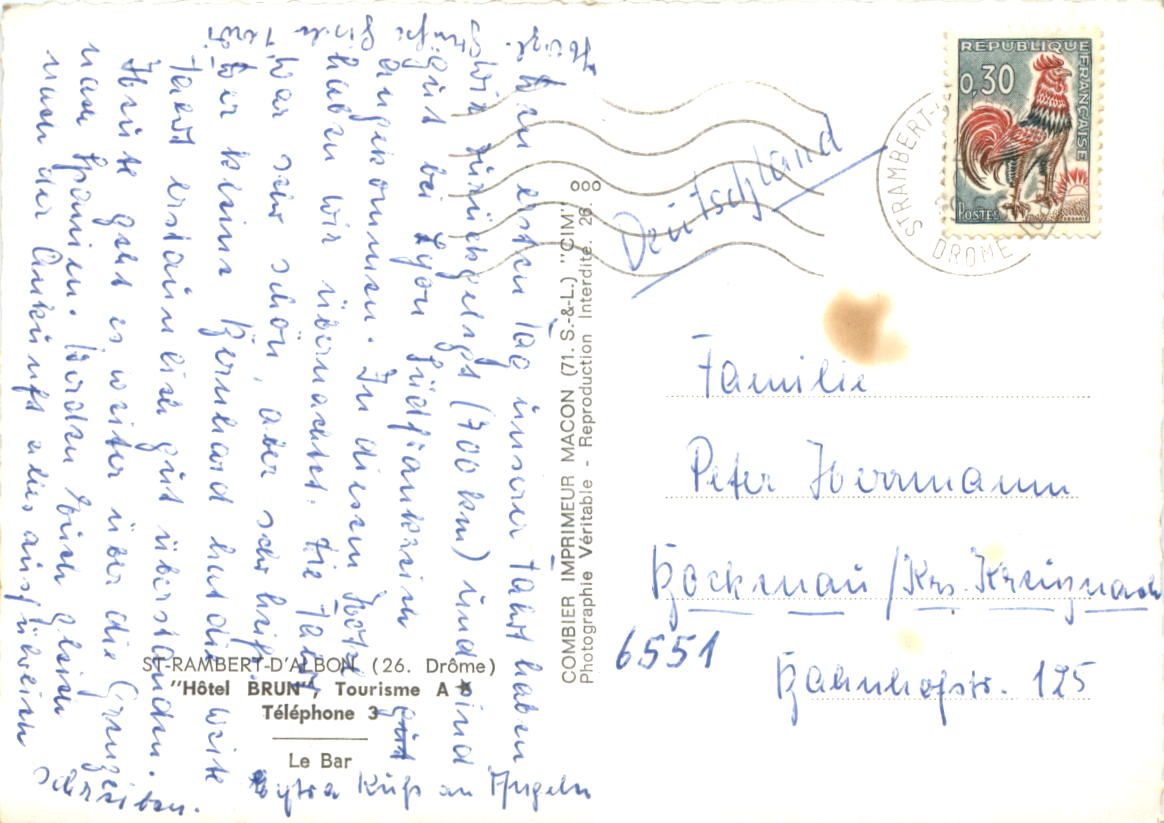 Den ersten Tag unserer Fahrt haben
wir zurückgelegt (700 km) und sind
gut bei Lyon Südfrankreich gut
angekommen. In diesem Hotel
haben wir übernachtet. Die Fahrt
war sehr schön, aber sehr heiß.
Der kleine Bernhard hat die weite
Fahrt erstaunlich gut überstanden.
Heute geht es weiter über die Grenze
nach Spanien. Werden Euch gleich
nach der Ankunft alles ausführlich
schreiben.
Herzl.
Grüße
Extra Kuß an Angela
ST-RAMBERT-D'ALBON (26. Drôme)
"Hôtel BRUN", Tourisme A ★
Téléphone 3
Le Bar
COMBIER IMPRIMEUR MACON (71. S.-&-L.) "CIM"
Photographie Véritable - Reproduction Interdite. 26. ooo
REPUBLIQUE FRANÇAISE
0,30
POSTES
ST RAMBERT-D
DROME
Deutschland
Familie
Peter Herrmann
Bockenau / Krs. Kreuznach
6551
Bahnhofstr. 125